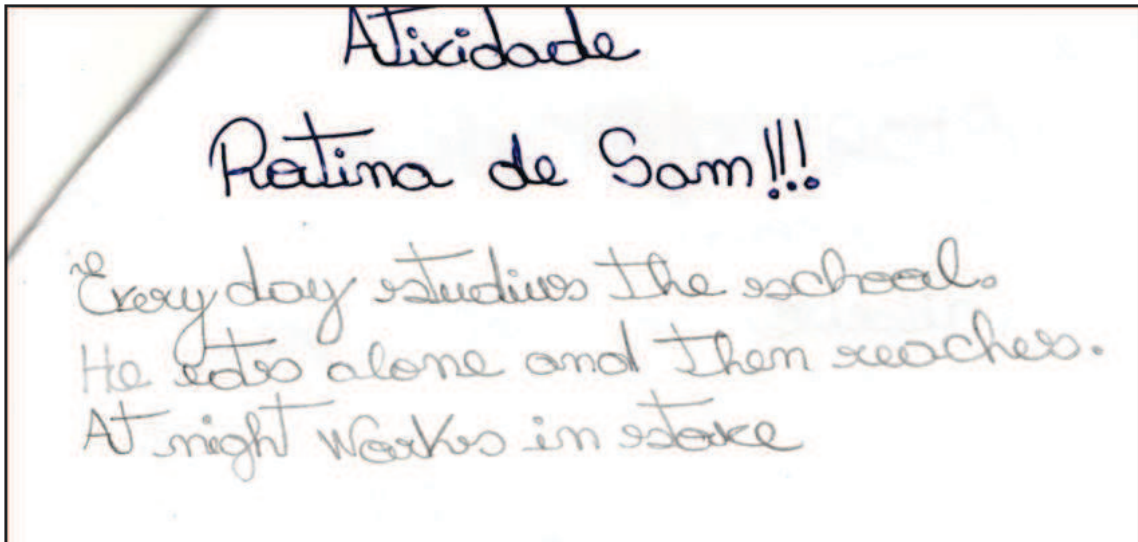 Atividade
Rotina de Sam!!!
Every day studies the school.
He eats alone and then reaches.
At night works in store